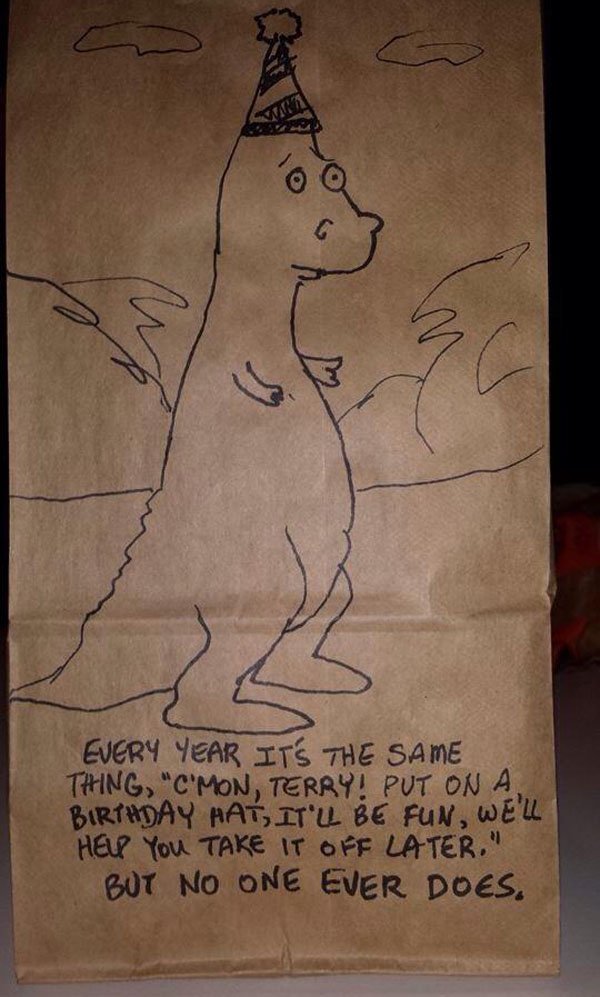 EVERY YEAR IT'S THE SAME
THING, "C'MON, TERRY! PUT ON A
BIRTHDAY HAT, IT'LL BE FUN, WE'LL
HELP YOU TAKE IT OFF LATER."
BUT NO ONE EVER DOES.